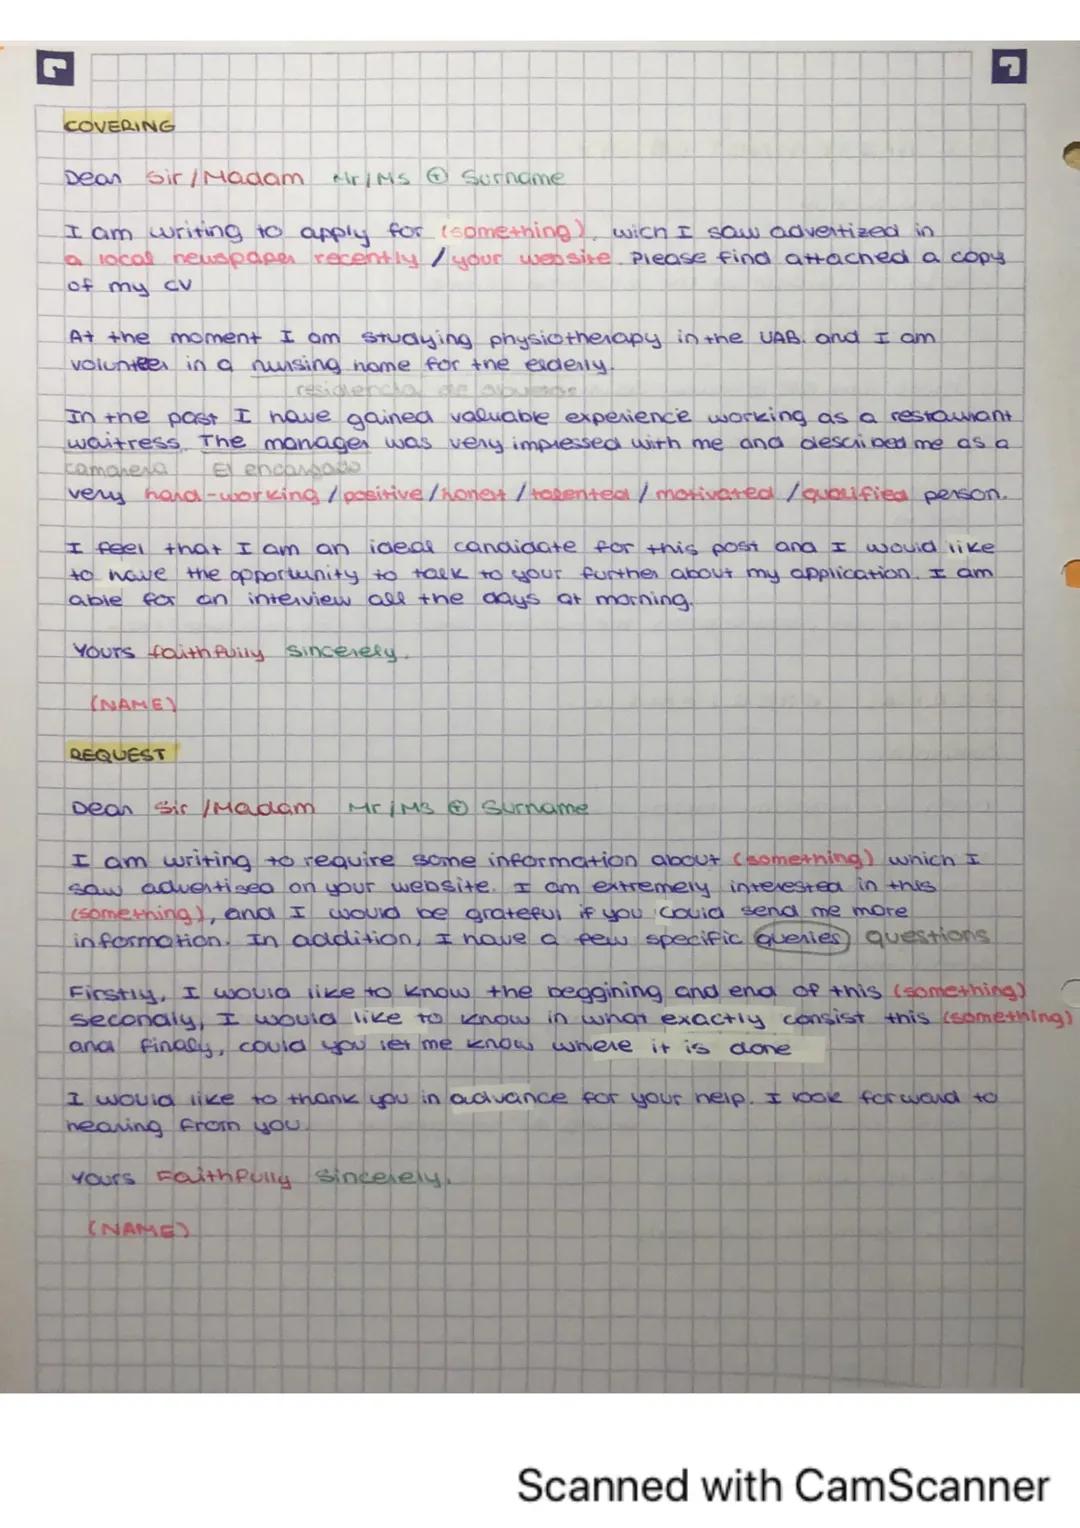 COVERING
Dear Sir/Madam Mr/Ms + Surname
I am writing to apply for (something), wich I saw advertized in
a local newspaper recently / your website. Please find attached a copy
of my CV
At the moment I am studying physiotherapy in the UAB. and I am
volunteer in a nursing home for the elderly.
residencia de abuelos
In the past I have gained valuable experience working as a restaurant
waitress. The manager was very impressed with me and described me as a
camarera El encargado
very hard-working / positive / honest / talented / motivated / qualified person.
I feel that I am an ideal candidate for this post and I would like
to have the opportunity to talk to your further about my application. I am
able for an interview all the days at morning.
Yours faithfully sincerely.
(NAME)
REQUEST
Dear Sir /Madam Mr/Ms + Surname
I am writing to require some information about (something) which I
saw advertised on your website. I am extremely interested in this
(something), and I would be grateful if you could send me more
information. In addition, I have a few specific queries questions
Firstly, I would like to know the beggining and end of this (something)
secondly, I would like to know in what exactly consist this (something)
and finaly, could you let me know where it is done
I would like to thank you in advance for your help. I look forward to
hearing from you.
Yours Faithfully Sincerely.
(NAME)
Scanned with CamScanner